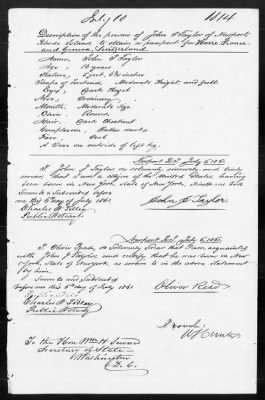 July 10 1814
Description of the person of John S Taylor of Newport
Rhode Island to obtain a passport for Havre France
and Geneva, Switzerland.
Name, John S Taylor
Age, 18 years
Stature, 5 feet, 6½ inches
Shape of Forehead, Moderate Height, and full
Eyes, Dark Hazel
Nose, Ordinary
Mouth, Moderate Size
Chin, Round
Hair, Dark Chestnut
Complexion, Rather dark
Face, Oval
A Scar on outside of left leg.
Newport R.I. July 5, 1861
I John S Taylor do solemnly, sincerely, and truly
swear that I am a citizen of the United States, having
been born in New York, State of New York.
Sworn & Subscribed before
me this 5th day of July 1861
Charles N. Tilley
Public Notary
John S. Taylor
Newport R.I. July 5, 1861
I Oliver Read, do Solemnly Swear that I am acquainted
with John S Taylor and certify that he was born in New
York, State of New York, as sworn to in the above Statement
by him.
Sworn and Subscribed
before me this 5th day of July 1861
Oliver Read
Charles N. Tilley
Public Notary
To the Hon. Wm H. Seward
Secretary of State
Washington
D.C.